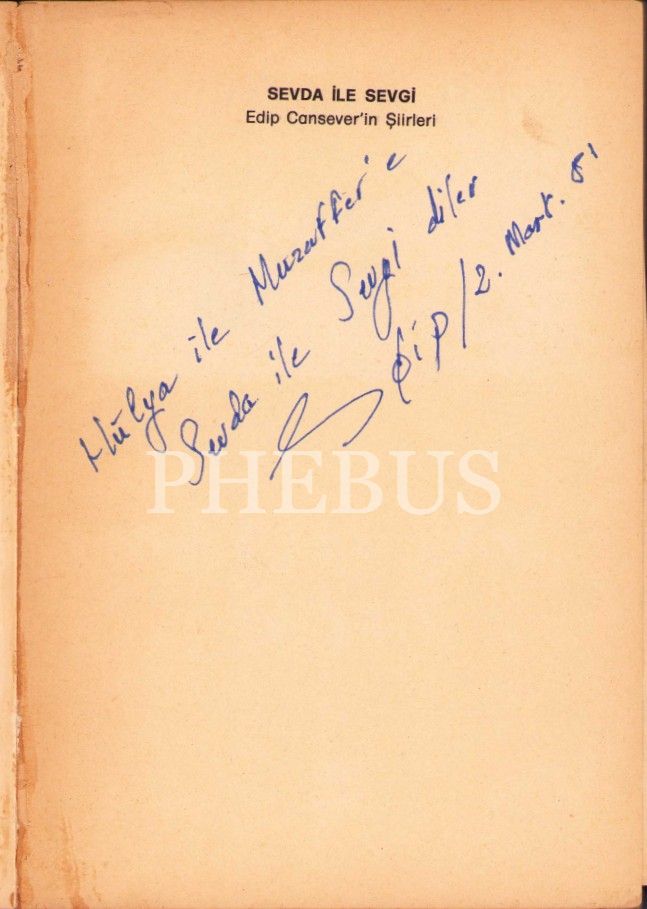 SEVDA İLE SEVGİ
Edip Cansever'in Şiirleri
Hülya ile Muzaffer'e
Sevda ile Sevgi diler
Edip / 2. Mart. 81
PHEBUS